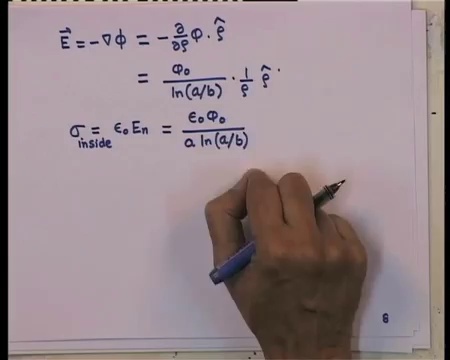 E⃗ = -∇Φ = - ∂/∂ρ Φ · ρ̂
= Φ₀/ln(a/b) · 1/ρ ρ̂ ·
σ_inside = ε₀ Eₙ = ε₀Φ₀/a ln(a/b)
8